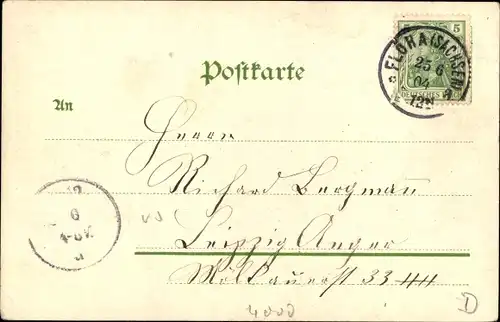 5 5
FLÖHA (SACHSEN)
25 6
04
12-1N
DEUTSCHES REICH
Postkarte
An
Herrn
Richard Bergmañ
Leipzig Anger
33 44
12
6
4-5V.
4000
D